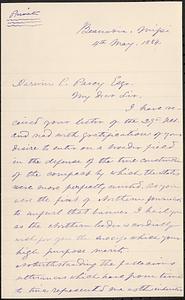 Private
Beauvoir, Missi
4th May, 1884.
Harvim C. Pavey Esq.
My dear Sir,
I have re-
ceived your letter of the 29th Ult.
and read with great pleasure of your
desire to enter on a broader field
in the defense of the true construction
of the compact by which the States
were more perfectly united. As you
were the first of Northern
to unfurl that banner I hail you
as the Northern leader & cordially
wish for you the success which your
high purpose merits.
Notwithstanding the passions
utterances which have from time
to time represented me as the